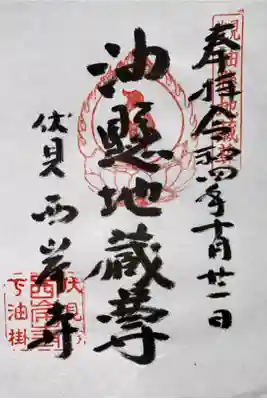 奉拝 令和四年十月廿一日
油懸地蔵尊
伏見 西岸寺
伏見
下油掛
西岸寺